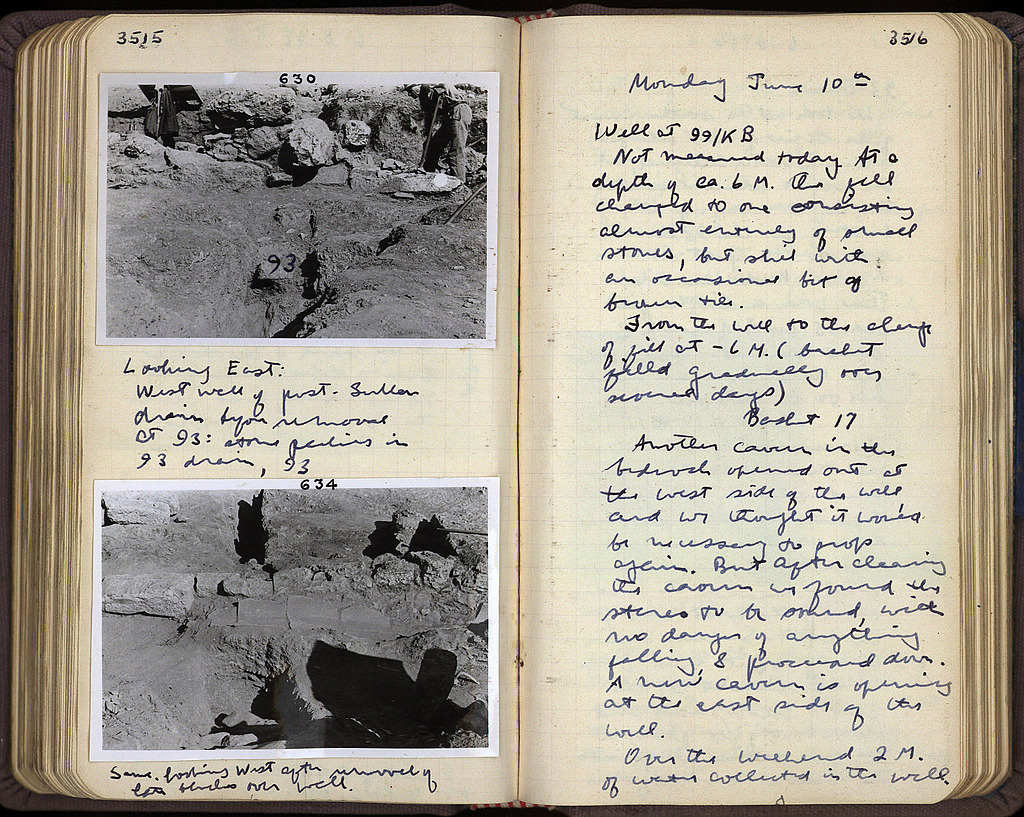 3515
630
93
Looking East:
West wall of post-Sullan
drain upon removal
at 93: stone packing in
93 drain, 93
634
Same, looking West after removal of
late blocks over well.
3516
Monday June 10th
Well at 99/KB
Not measured today. At a
depth of ca. 6 M. the fill
changed to one consisting
almost entirely of small
stones, but still with
an occasional bit of
brown tile.
From the well to the change
of fill at -6 M. (basket
filled gradually over
several days)
Basket 17
Another cavern in the
bedrock opened out at
the west side of the well
and we thought it would
be necessary to prop
again. But after clearing
the cavern we found the
stereo to be sound, with
no danger of anything
falling, & proceeded down.
A new cavern is opening
at the east side of the
well.
Over the weekend 2 M.
of water collected in the well.